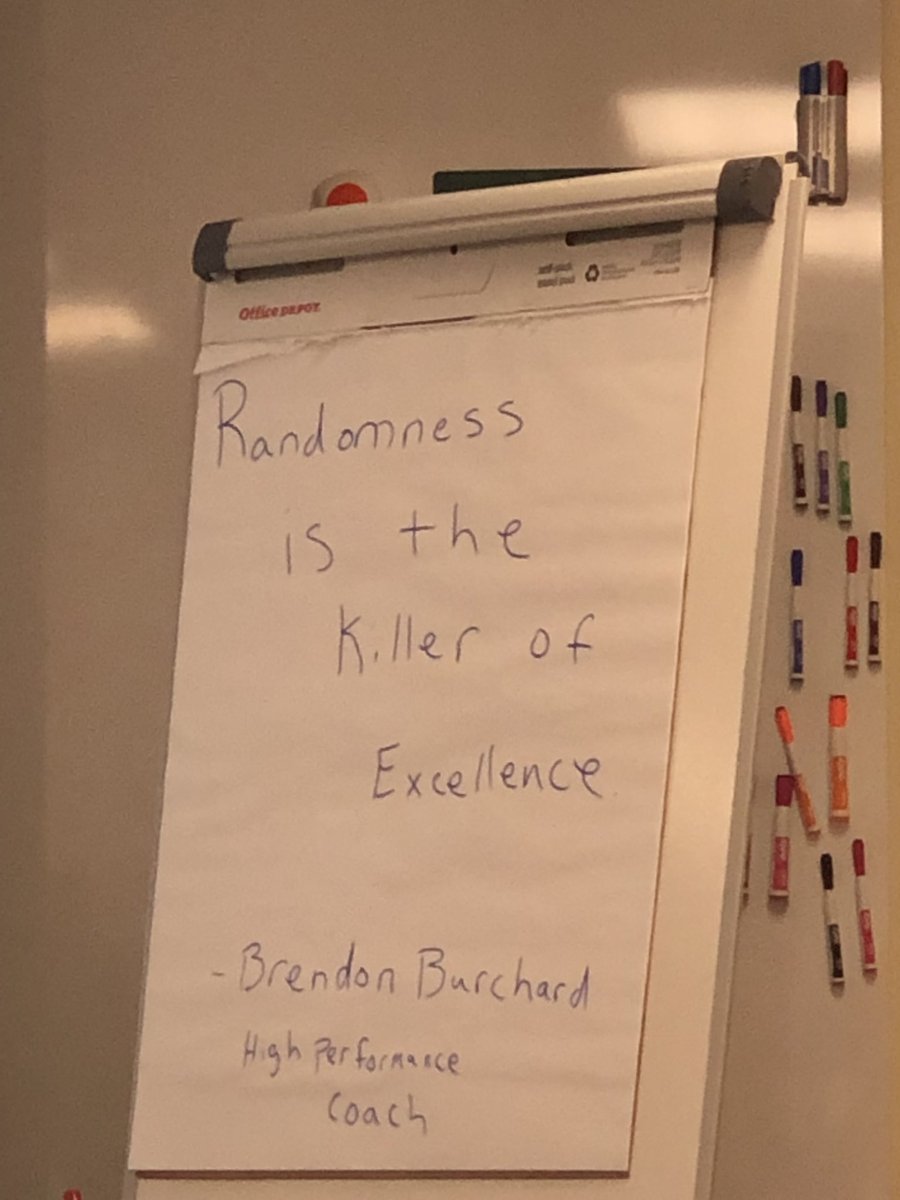 Office DEPOT
Randomness
is the
Killer of
Excellence
- Brendon Burchard
High Performance
Coach